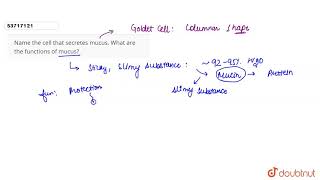 53717121
Name the cell that secretes mucus. What are
the functions of mucus?
Goblet Cell: Columnar Shape
↳ Sticky, Slimy Substance: ~ 92-95% H₂O
Mucin → Protein
Slimy Substance
fun: Protection
doubtnut